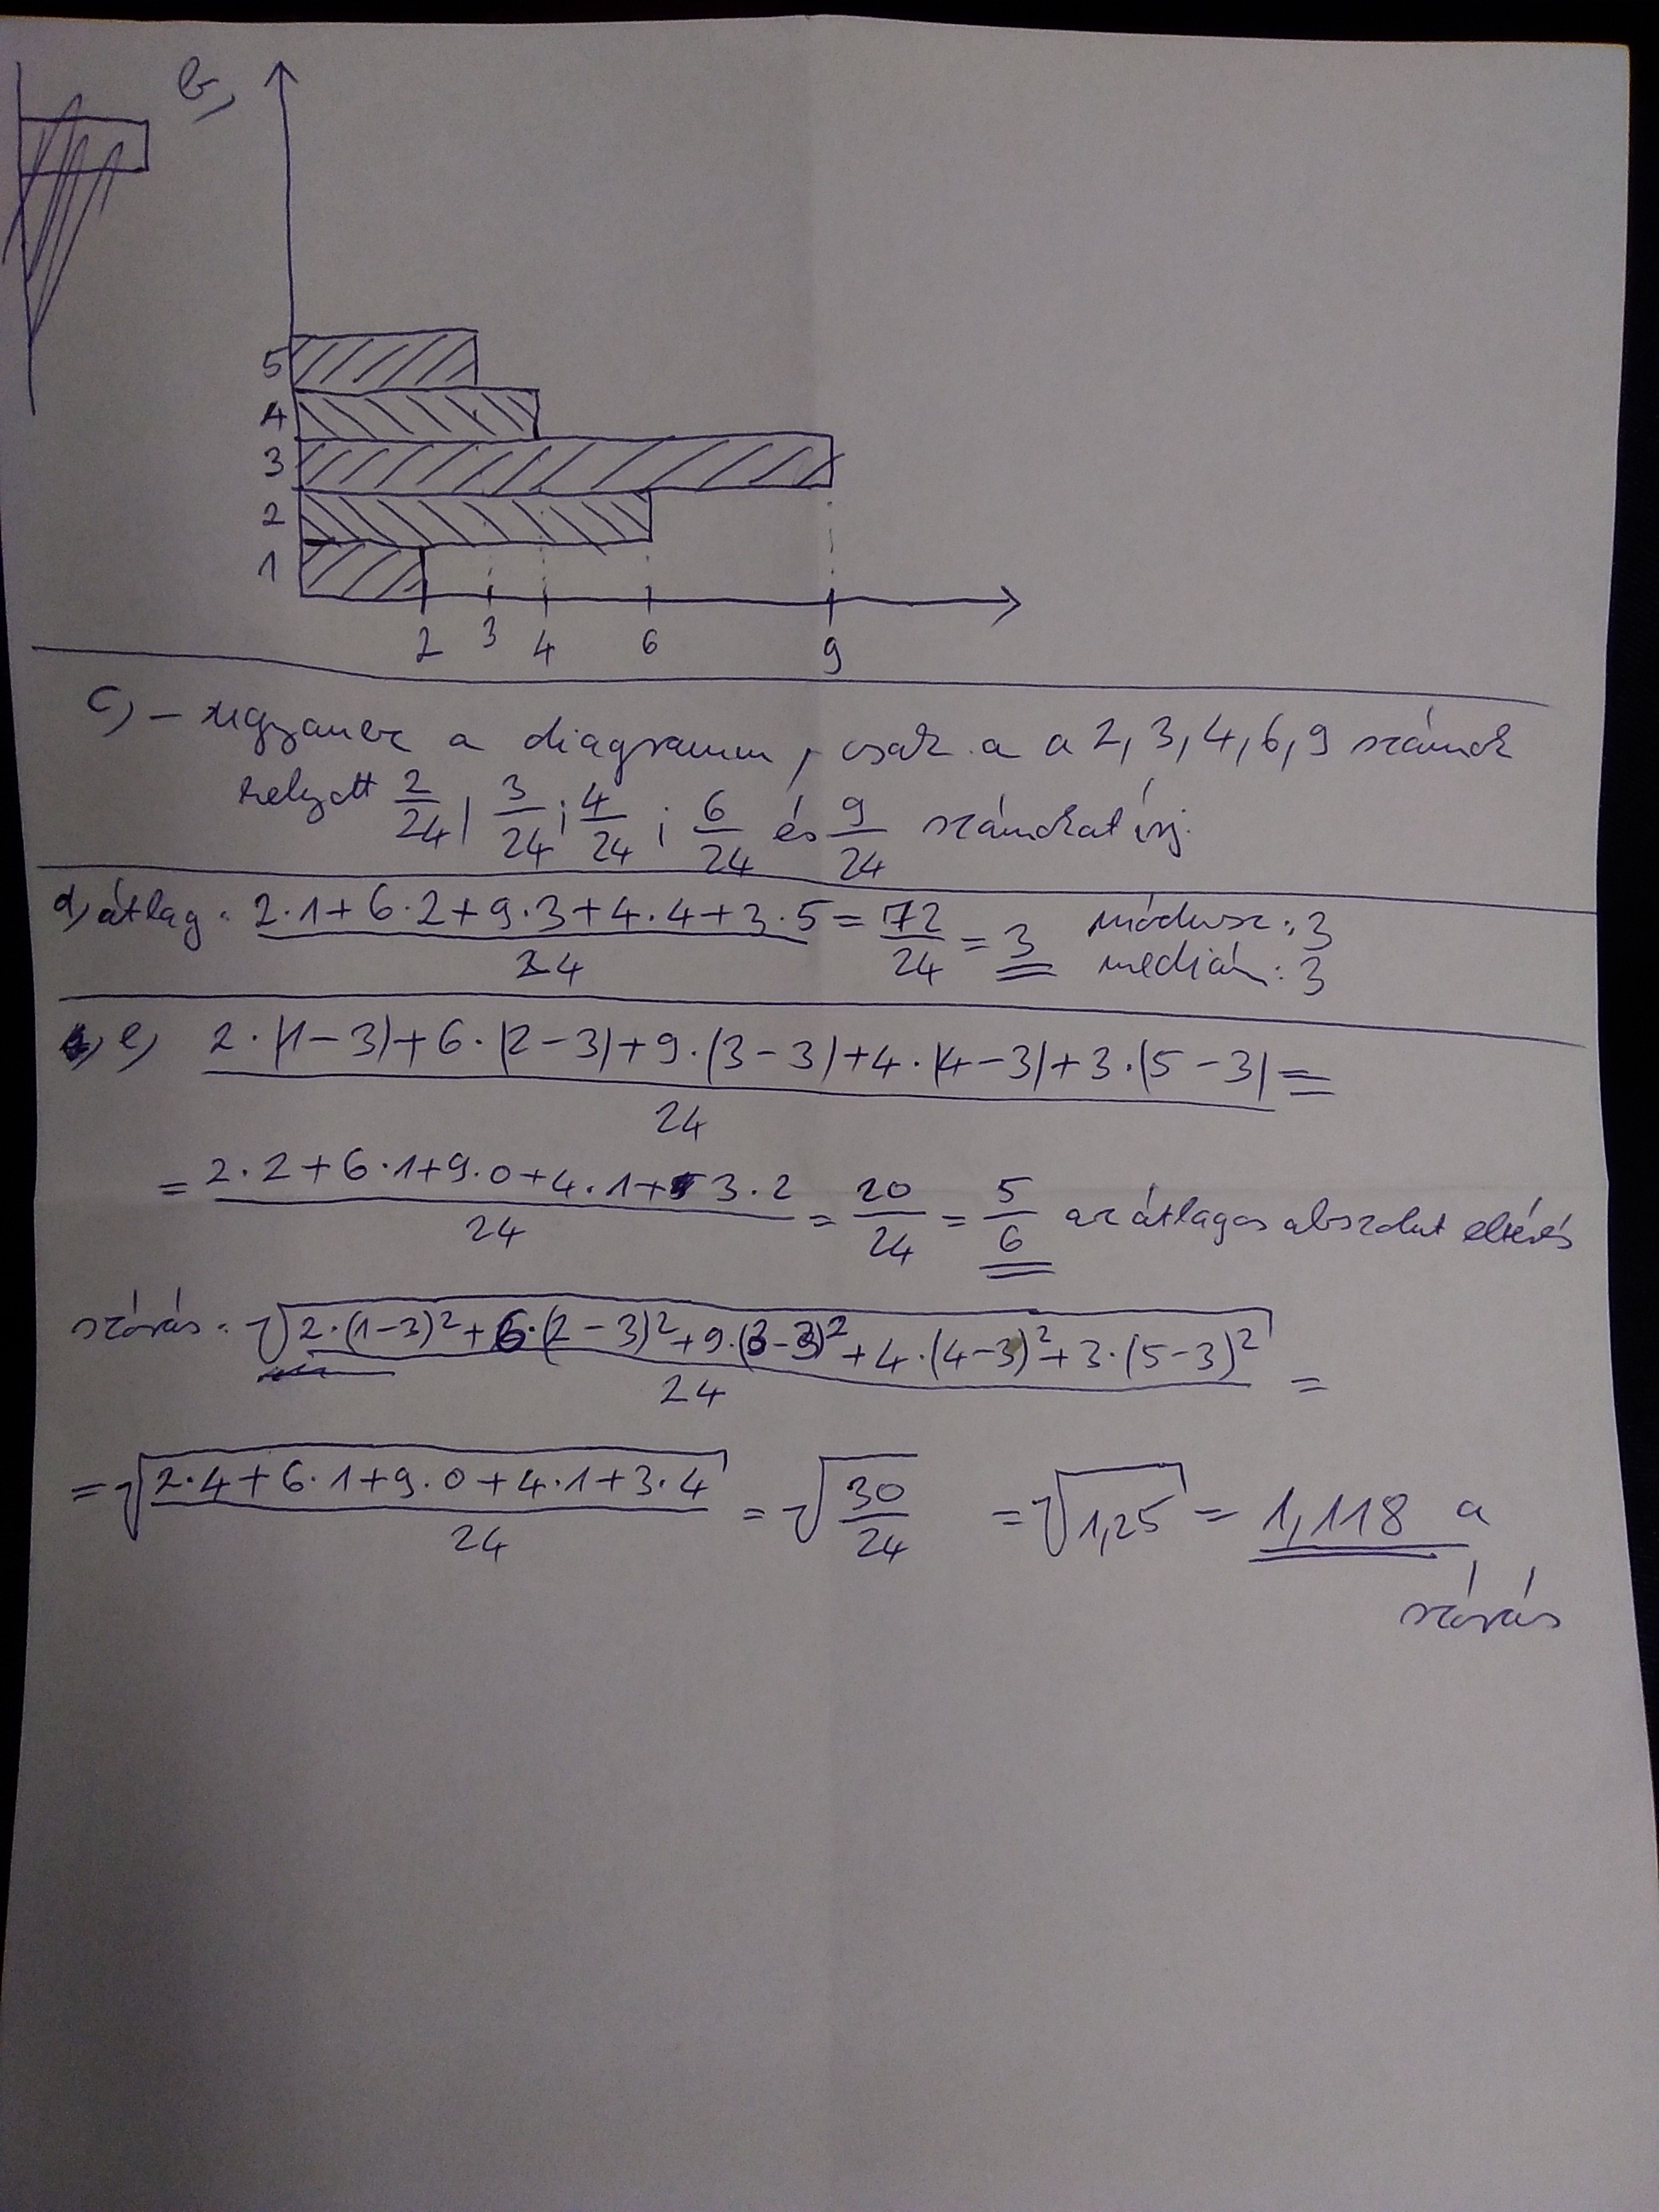 b,
5
4
3
2
1
2 3 4 6 9
c) – ugyanez a diagramm, csak a a 2, 3, 4, 6, 9 számok
helyett 2/24 ; 3/24 ; 4/24 ; 6/24 és 9/24 számokat írj.
d, átlag: (2·1+6·2+9·3+4·4+3·5)/24 = 72/24 = 3 módusz: 3
medián: 3
e, (2·|1-3|+6·|2-3|+9·|3-3|+4·|4-3|+3·|5-3|)/24 =
= (2·2+6·1+9·0+4·1+3·2)/24 = 20/24 = 5/6 az átlagos abszolut eltérés
szórás: √((2·(1-3)²+6·(2-3)²+9·(3-3)²+4·(4-3)²+3·(5-3)²)/24) =
= √((2·4+6·1+9·0+4·1+3·4)/24) = √(30/24) = √1,25 = 1,118 a
szórás